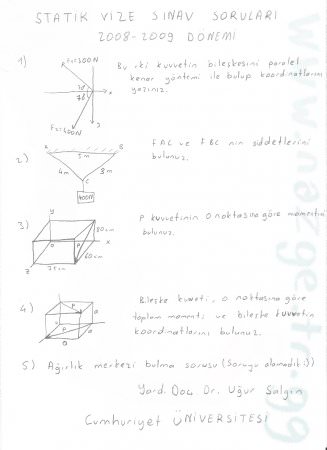 STATIK VIZE SINAV SORULARI
2008-2009 DÖNEMİ
1)
Bu iki kuvvetin bileşkesini paralel
kenar yöntemi ile bulup koordinatlarını
yazınız.
x
2)
A
B
5m
4m
3m
C
400N
FAC ve FBC nin şiddetlerini
bulunuz.
3)
y
80cm
x
O
P
60cm
z
75cm
P kuvvetinin O noktasına göre momentini
bulunuz.
4)
P
a
a
O
Bileşke kuvveti, O noktasına göre
toplam momenti ve bileşke kuvvetin
koordinatlarını bulunuz.
5) Ağırlık merkezi bulma sorusu (Soruyu alamadık:))
Yard. Doç Dr. Uğur Salgın
Cumhuriyet ÜNİVERSİTESİ